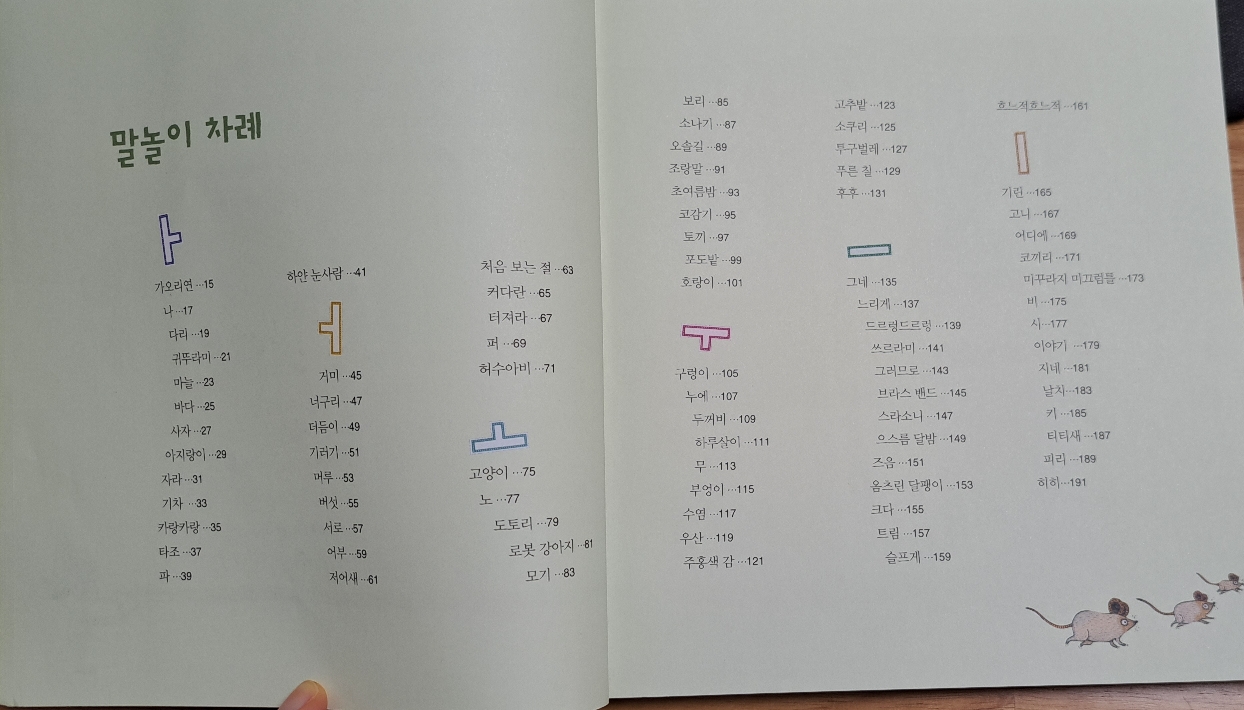 말놀이 차례
ㅏ
가오리연 ···15
나 ···17
다리 ···19
귀뚜라미 ···21
마늘 ···23
바다 ···25
사자 ···27
아지랑이 ···29
자라 ···31
기차 ···33
카랑카랑 ···35
타조 ···37
파 ···39
하얀 눈사람 ···41
ㅓ
거미 ···45
너구리 ···47
더듬이 ···49
기러기 ···51
머루 ···53
버섯 ···55
서로 ···57
어부 ···59
저어새 ···61
처음 보는 절 ···63
커다란 ···65
터져라 ···67
퍼 ···69
허수아비 ···71
ㅗ
고양이 ···75
노 ···77
도토리 ···79
로봇 강아지 ···81
모기 ···83
보리 ···85
소나기 ···87
오솔길 ···89
조랑말 ···91
초여름밤 ···93
코감기 ···95
토끼 ···97
포도밭 ···99
호랑이 ···101
ㅜ
구렁이 ···105
누에 ···107
두꺼비 ···109
하루살이 ···111
무 ···113
부엉이 ···115
수염 ···117
우산 ···119
주홍색 감 ···121
고추밭 ···123
소쿠리 ···125
투구벌레 ···127
푸른 질 ···129
후후 ···131
ㅡ
그네 ···135
느리게 ···137
드르렁드르렁 ···139
쓰르라미 ···141
그러므로 ···143
브라스 밴드 ···145
스라소니 ···147
으스름 달밤 ···149
즈음 ···151
움츠린 달팽이 ···153
크다 ···155
트림 ···157
슬프게 ···159
흐느적흐느적 ···161
ㅣ
기린 ···165
고니 ···167
어디에 ···169
코끼리 ···171
미꾸라지 미끄럼틀 ···173
비 ···175
시 ···177
이야기 ···179
지네 ···181
날치 ···183
키 ···185
티티새 ···187
피리 ···189
히히 ···191